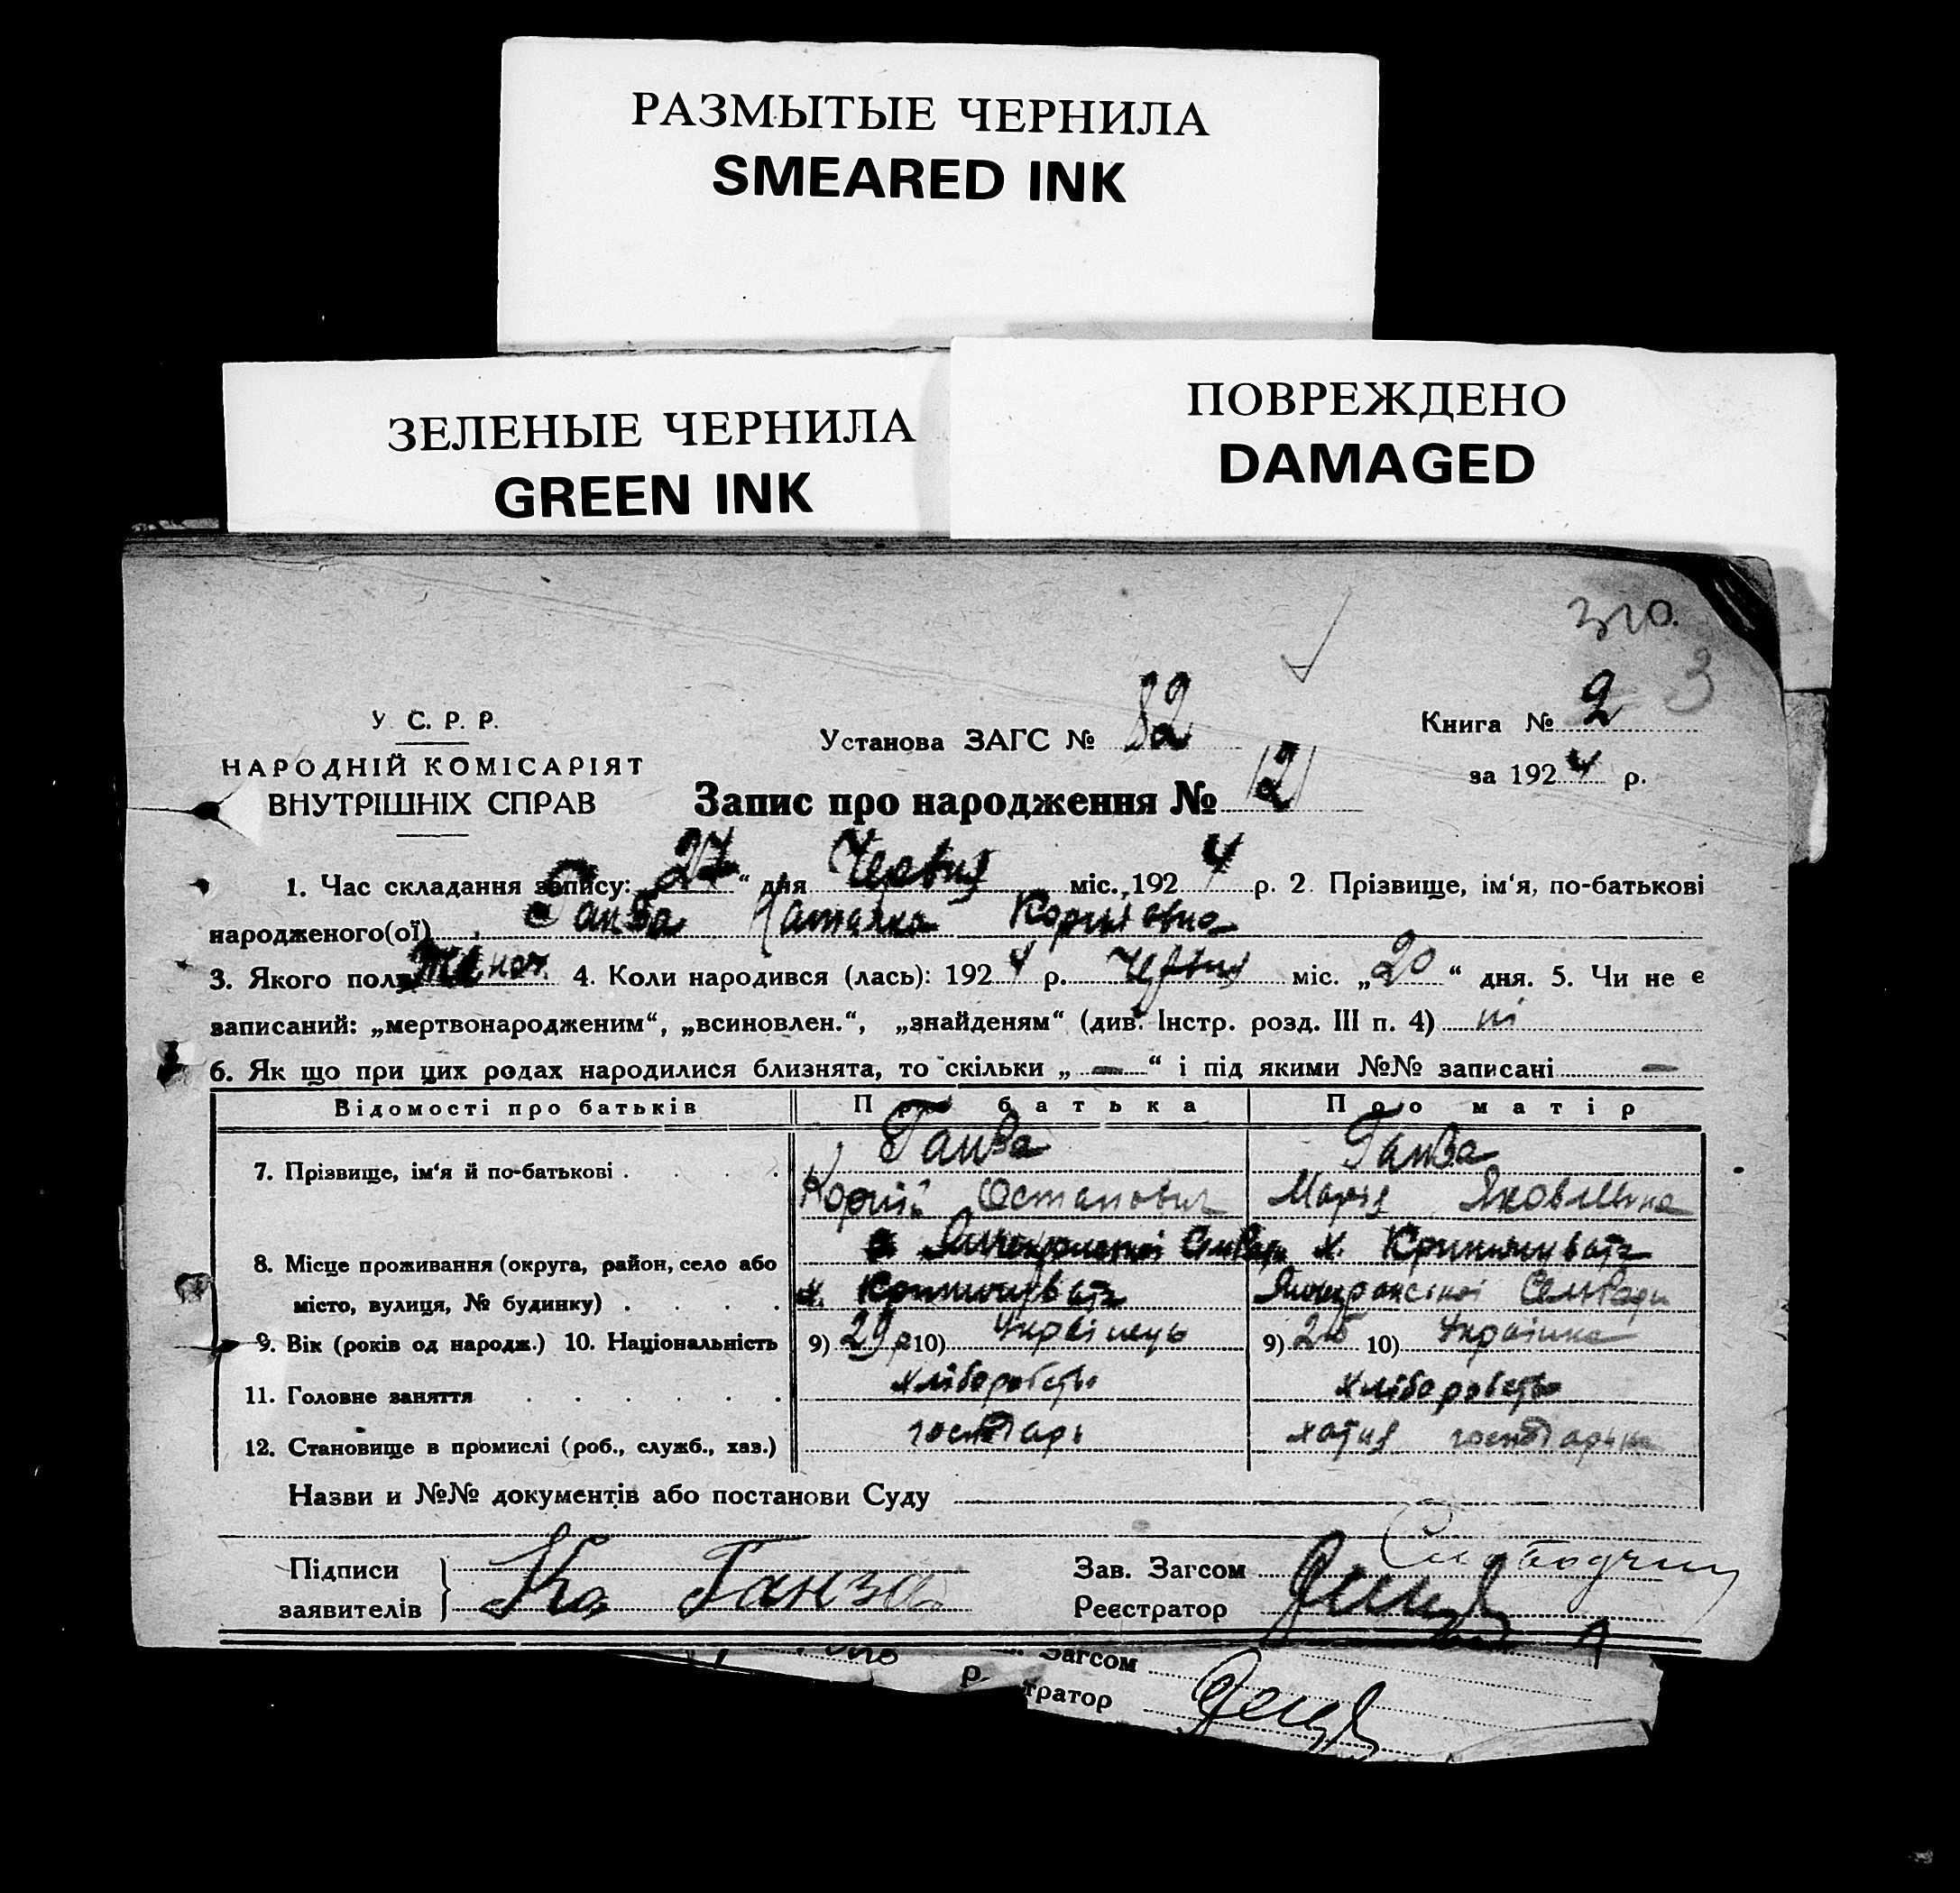 РАЗМЫТЫЕ ЧЕРНИЛА
SMEARED INK
ЗЕЛЕНЫЕ ЧЕРНИЛА
GREEN INK
ПОВРЕЖДЕНО
DAMAGED
3
У. С. Р. Р.
НАРОДНІЙ КОМІСАРІЯТ
ВНУТРІШНІХ СПРАВ
Установа ЗАГС № 82
Книга № 2
за 1924 р.
Запис про народження № 121
1. Час складання запису: „27“ дня Червня міс. 1924 р. 2. Прізвище, ім‘я, по-батькові
народженого(ої) Ганза Наталка Корніївна
3. Якого пола жіноч. 4. Коли народився (лась): 1924 р. Червня міс. „20“ дня. 5. Чи не є
записаний: „мертвонародженим“, „всиновлен.“, „знайденям“ (див. Інстр. розд. III п. 4) ні
6. Як що при цих родах народилися близнята, то скільки „—“ і під якими №№ записані —
Відомості про батьків Про батька Про матір
7. Прізвище, ім‘я й по-батькові . . . . Ганза Ганза
Корній Остапович Марія Яковлівна
8. Місце проживання (округа, район, село або Сельради х. Криничувата
місто, вулиця, № будинку) . . . . х. Криничувата Сельради
9. Вік (років од народж.) 10. Національність 9) 29 р 10) Українець 9) 25 10) Українка
11. Головне заняття . . . . . . хліборобство хліборобство
12. Становище в промислі (роб., служб., хав.) господарь хатня господарька
Назви и №№ документів або постанови Суду
Підписи
заявителів } Ко Ганза
Зав. Загсом
Реєстратор
Загсом
р. тратор